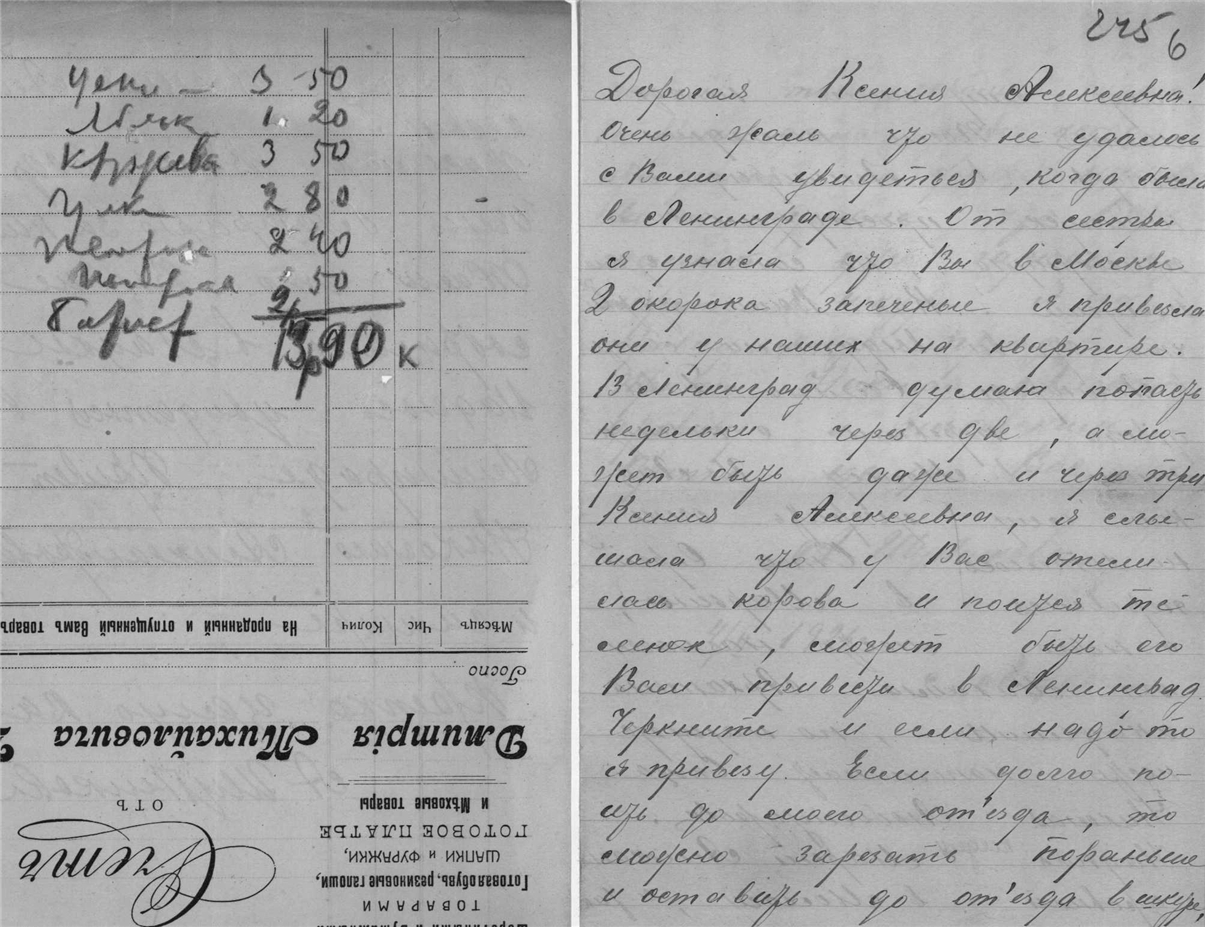 3 50
1 20
кружева 3 50
2 80
2 40
50
13р 90 к
На проданный и отпущенный Вамъ товаръ
Колич
Чис
Мѣсяцъ
Госпо
Дмитрія Михайловича
Счетъ
ОТЪ
и Мѣховые товары
ГОТОВОЕ ПЛАТЬЕ
ШАПКИ и ФУРАЖКИ,
Готовая обувь, резиновые галоши,
ТОВАРАМИ
245 б
Дорогая Ксения Алексеевна!
Очень жаль что не удалось
с Вами увидеться, когда была
в Ленинграде. От сестры
я узнала что Вы в Москве
2 окорока запеченые я привезла
они у наших на квартире.
В Ленинград думаю попасть
недельки через две, а мо-
жет быть даже и через три
Ксения Алексеевна, я слы-
шала что у Вас отели
лась корова и поится те
ленок, может быть его
Вам привезти в Ленинград.
Черкните и если надо то
я привезу. Если долго по-
ить до моего от'езда, то
можно зарезать пораньше
и оставить до от'езда в шкуре,